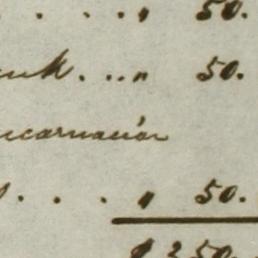 . . . . " 50.
. . . " 50.
ncarnación
. . . . " 50.
$ 350.